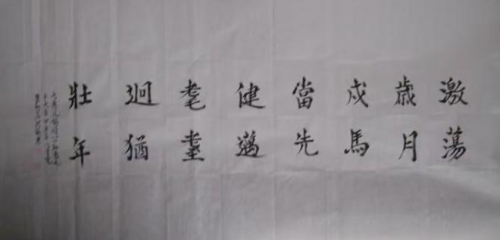 激蕩
歲月
戎馬
當先
健邁
耄耋
迥猶
壯年